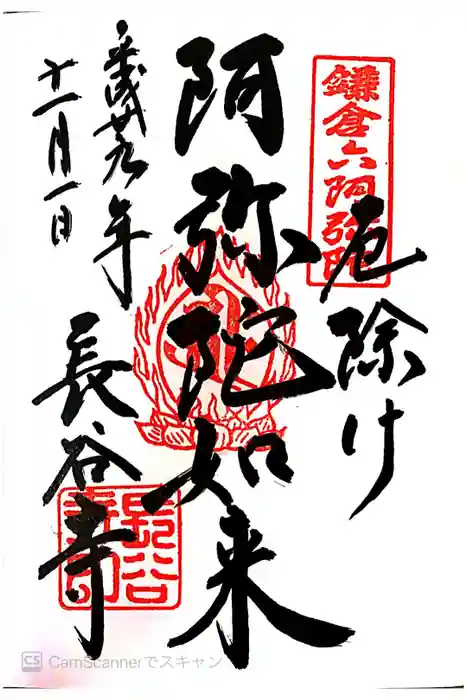 鎌倉六阿弥陀
厄除け
阿弥陀如来
平成廿九年
十一月一日
長谷寺
長谷寺印
CS CamScannerでスキャン